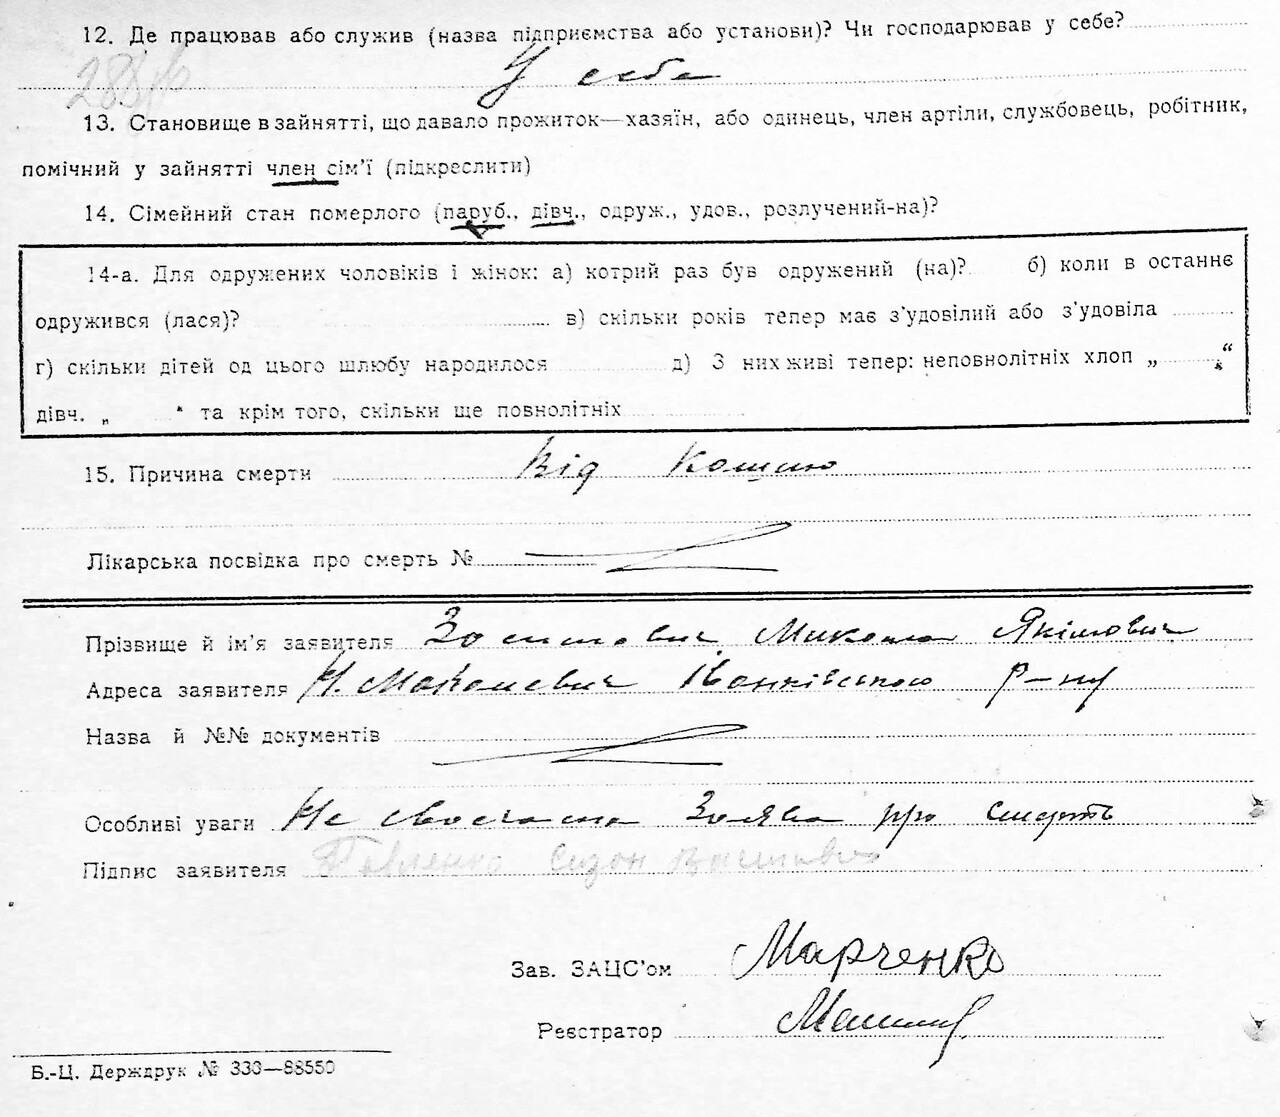 12. Де працював або служив (назва підприємства або установи)? Чи господарював у себе?
У себе
13. Становище в зайнятті, що давало прожиток—хазяїн, або одинець, член артіли, службовець, робітник,
помічний у зайнятті член сім'ї (підкреслити)
14. Сімейний стан померлого (паруб., дівч., одруж., удов., розлучений-на)?
14-а. Для одружених чоловіків і жінок: а) котрий раз був одружений (на)? б) коли в останнє
одружився (лася)? в) скільки років тепер має з'удовілий або з'удовіла
г) скільки дітей од цього шлюбу народилося д) З них живі тепер: неповнолітніх хлоп „ “
дівч. „ “ та крім того, скільки ще повнолітніх
15. Причина смерти Від
Лікарська посвідка про смерть №
Прізвище й ім'я заявителя Микола Якімович
Адреса заявителя Н. Макалевич Іванківського р-ну
Назва й №№ документів
Особливі уваги Не своєчасна Заява про смерть
Підпис заявителя Павленко
Зав. ЗАЦС'ом Марченко
Реєстратор
Б.-Ц. Держдрук № 330—88550